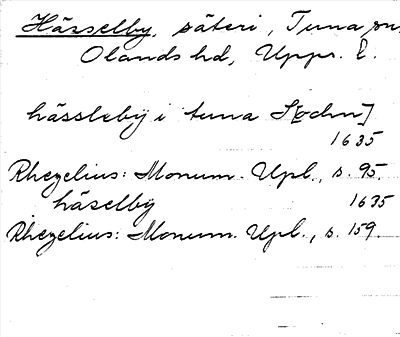 Hässelby, säteri, Tuna sn,
Olands hd, Upps. l.
hässlebÿ i tuna S[ochn]
1635
Rhezelius: Monum. Upl., s. 95.
häselbÿ 1635
Rhezelius: Monum. Upl., s. 159.